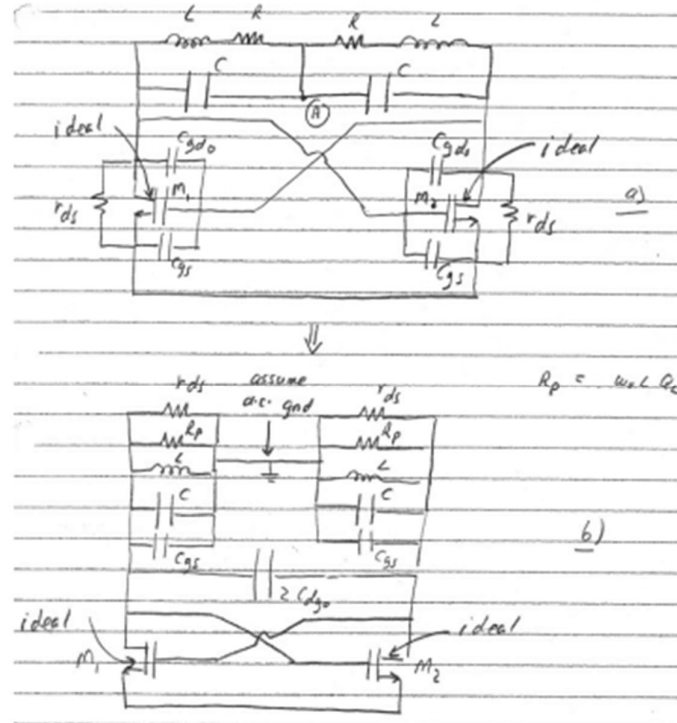 L R R L
C C
A
ideal Cgdo Cgdo ideal
M1 M2 a)
rds rds
Cgs Cgs
⇓
rds assume rds Rp =
a.c. gnd
Rp Rp
L L
C C
Cgs Cgs b)
2 Cdgo
ideal ideal
M1 M2